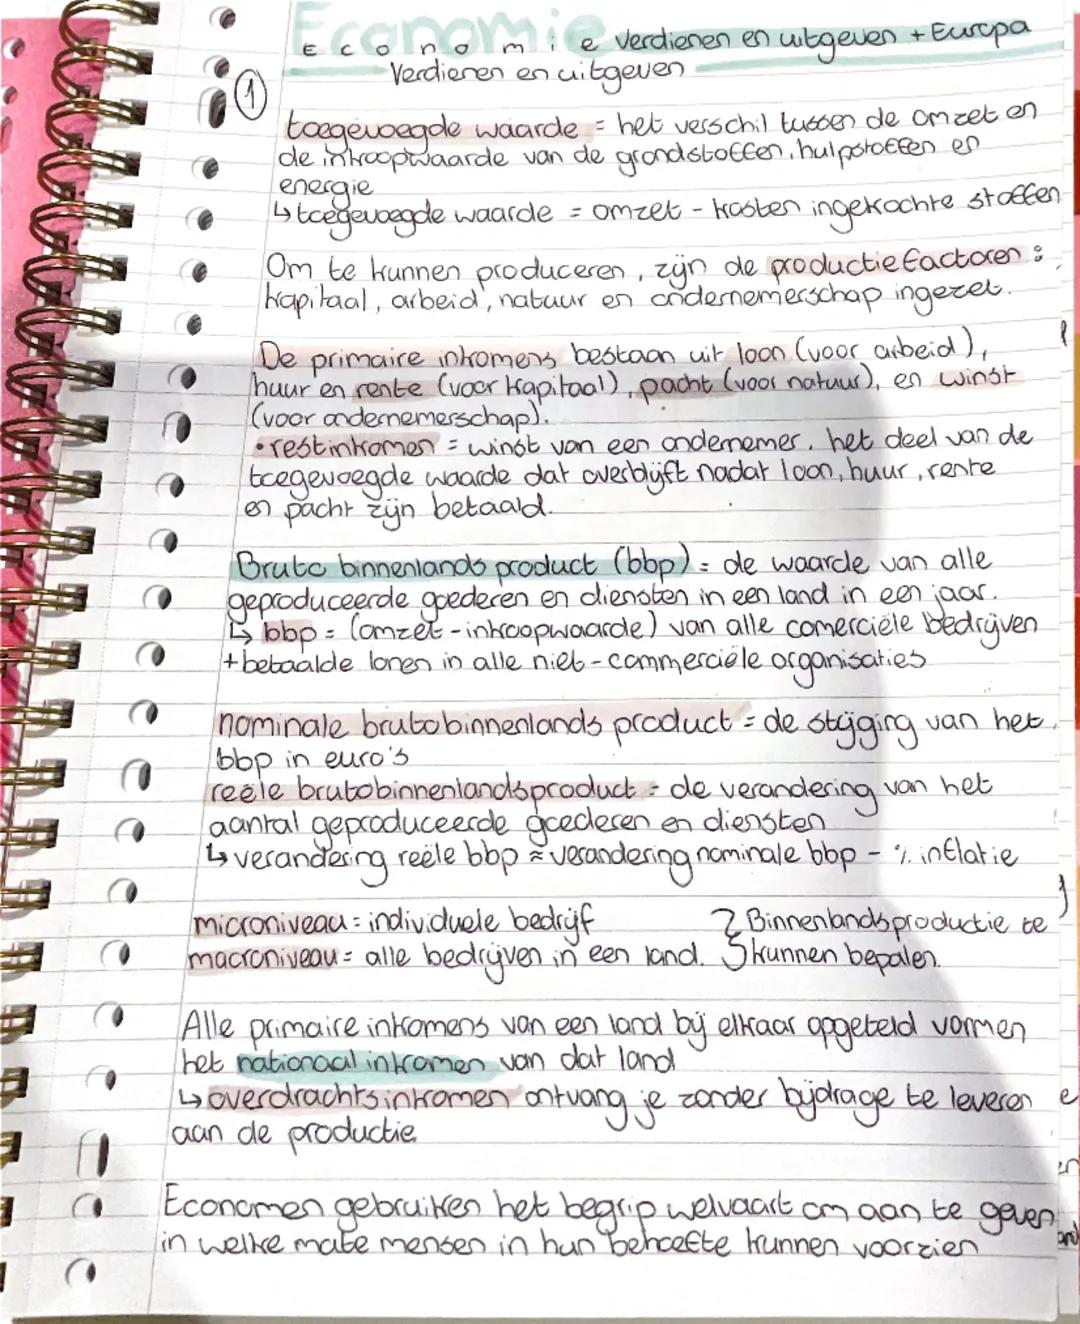 Economie
Economie verdienen en uitgeven + Europa
Verdienen en uitgeven
1
toegevoegde waarde = het verschil tussen de omzet en
de inkoopwaarde van de grondstoffen, hulpstoffen en
energie
↳ toegevoegde waarde = omzet - kosten ingekochte stoffen
Om te kunnen produceren, zijn de productiefactoren:
kapitaal, arbeid, natuur en ondernemerschap ingezet.
De primaire inkomens bestaan uit loon (voor arbeid),
huur en rente (voor kapitaal), pacht (voor natuur), en winst
(voor ondernemerschap).
• restinkomen = winst van een ondernemer. het deel van de
toegevoegde waarde dat overblijft nadat loon, huur, rente
en pacht zijn betaald.
Bruto binnenlands product (bbp) = de waarde van alle
geproduceerde goederen en diensten in een land in een jaar.
↳ bbp = (omzet - inkoopwaarde) van alle comerciële bedrijven
+ betaalde lonen in alle niet-commerciële organisaties
nominale brutobinnenlands product = de stijging van het
bbp in euro's
reële brutobinnenlandsproduct = de verandering van het
aantal geproduceerde goederen en diensten
↳ verandering reële bbp ≈ verandering nominale bbp - % inflatie
microniveau = individuele bedrijf } Binnenlandsproductie te
macroniveau = alle bedrijven in een land. } kunnen bepalen.
Alle primaire inkomens van een land bij elkaar opgeteld vormen
het nationaal inkomen van dat land
↳ overdrachtsinkomen ontvang je zonder bijdrage te leveren
aan de productie.
Economen gebruiken het begrip welvaart om aan te geven
in welke mate mensen in hun behoefte kunnen voorzien